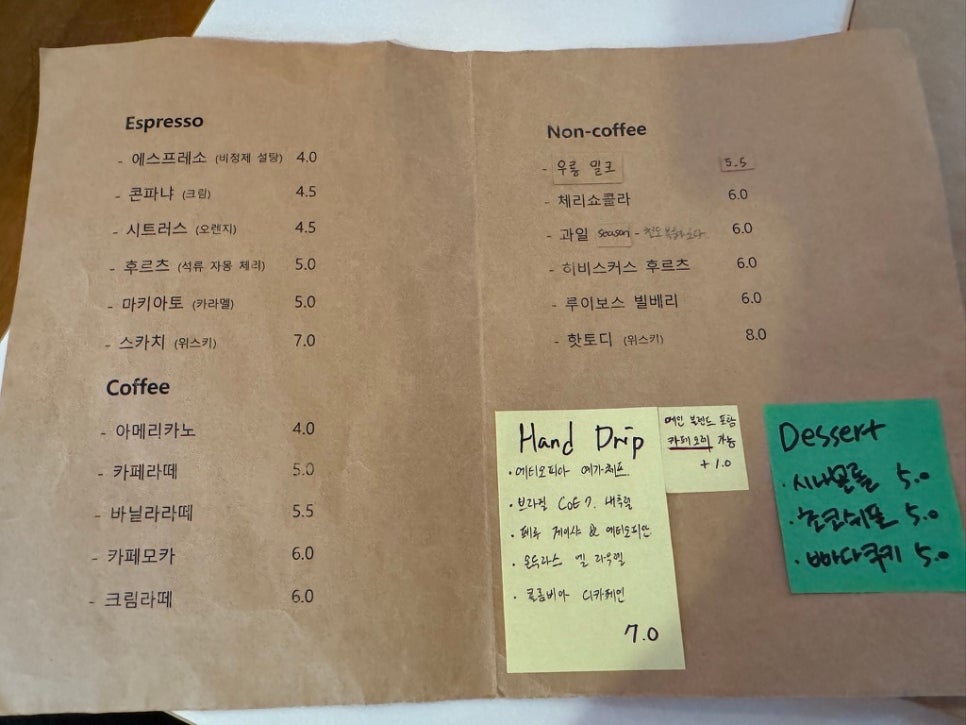 Espresso
- 에스프레소 (비정제 설탕) 4.0
- 콘파냐 (크림) 4.5
- 시트러스 (오렌지) 4.5
- 후르츠 (석류 자몽 체리) 5.0
- 마키아토 (카라멜) 5.0
- 스카치 (위스키) 7.0
Coffee
- 아메리카노 4.0
- 카페라떼 5.0
- 바닐라라떼 5.5
- 카페모카 6.0
- 크림라떼 6.0
Non-coffee
- 우롱 밀크 5.5
- 체리쇼콜라 6.0
- 과일 season - 6.0
- 히비스커스 후르츠 6.0
- 루이보스 빌베리 6.0
- 핫토디 (위스키) 8.0
Hand Drip
· 에티오피아 예가체프
· 브라질 CoE 7. 내추럴
· 페루 게이샤 & 에티오피안
· 온두라스 엘 라우렐
· 콜롬비아 디카페인
7.0
메인 블렌드 포함
카페오레 가능
+ 1.0
Dessert
· 시나몬롤 5.0
· 초코쉬폰 5.0
· 빠다쿠키 5.0